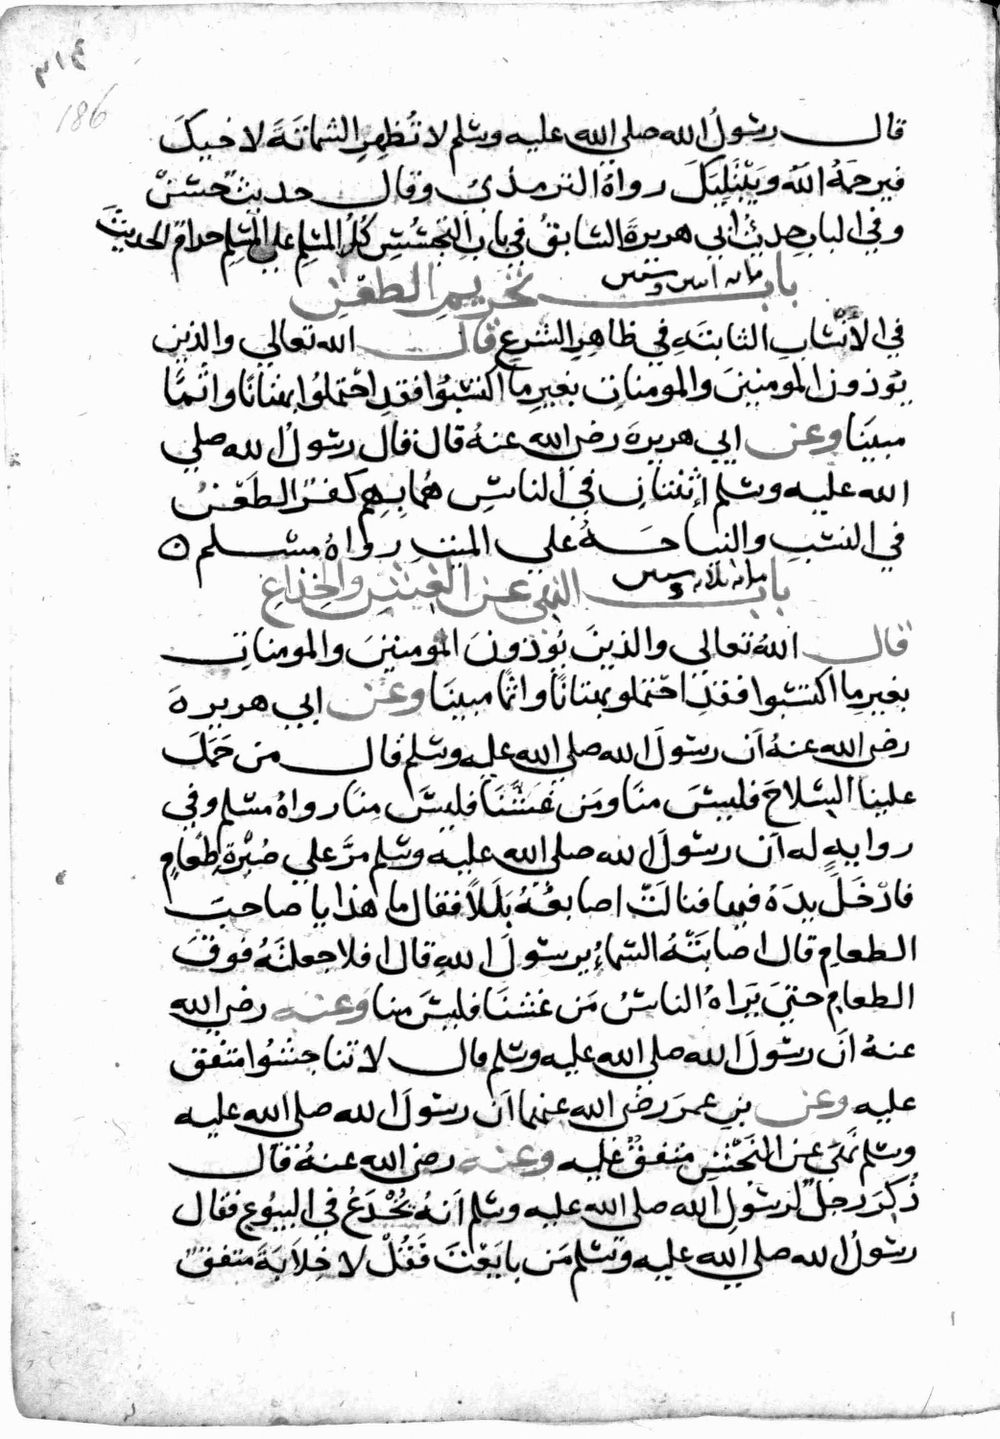 ٣١٤
186
قال رسولُ الله صلى الله عليه وسلم لا تُظهِرِ الشماتَةَ لاخيكَ
فيرحمَهُ اللهُ ويبْتَلِيَكَ رواهُ الترمذيُ وقال حديثٌ حسنٌ
وفي الباب حديثُ ابي هريرةَ السابقُ في باب التجسُسِ كُلُ المسلِمِ على المسلِمِ حرام الحديثَ
باب تحريم الطعْنِ
في الأنساب الثابتَةِ في ظاهِرِ الشرعِ قال الله تعالى والذين
يوذون المومنينَ والمومنات بغيرِ ما اكتسبُوا فقد احتملُوا بهتانًا واثمًا
مبينَا وعن ابي هريرةَ رضي الله عنهُ قال قال رسولُ الله صلى
الله عليه وسلم اثنتان في الناسِ هُما بِهِم كفرٌ الطَعْنُ
في النسَبِ والنياحَةُ على الميتِ رواهُ مسلم ه
باب النهى عن الغِشِ والخِدَاعِ
قال اللهُ تعالى والذينَ يُوذونَ المومنينَ والمومناتِ
بغيرِ ما اكتسبوا فقَدِ احتملو بهتانًا واثمًا مبينَا وعن ابي هريرةَ
رضي الله عنهُ اَن رسولَ الله صلى الله عليه وسلم قال من حَمَلَ
علينا السِلاحَ فليسَ منَا ومَن غَشَّنَا فليسَ مِنَا رواهُ مسلم وفي
روايةٍ له اَن رسولَ الله صلى الله عليه وسلم مرَّ على صُبْرَةِ طعَامٍ
فادْخَلَ يدَهُ فيها فنالَتْ اصابعُهُ بَلَلاً فقال ما هذا يا صاحبَ
الطعامِ قال اصابَتْهُ السماءُ يرسولَ اللهِ قال افلا جعلتَهُ فوقَ
الطعامِ حتىَ يَرَاهُ الناسُ مَن غشنَا فليسَ منا وعنه رضي الله
عنهُ اَن رسولَ الله صلى الله عليه وسلم قال لا تناجشُوا متفق
عليه وعن بنِ عمرَ رضي الله عنهما اَن رسولَ الله صلى الله عليه
وسلم نَهَى عن النَجْشِ متفقٌ عليه وعنه رضي الله عنهُ قال
ذُكِرَ رجلٌ لرسُولِ الله صلى الله عليه وسلم اَنهُ يُخْدَعُ في البيُوعِ فقال
رسولُ الله صلى الله عليه وسلم مَن بايَعْتَ فَقُلْ لا خِلاَبَةَ متفق